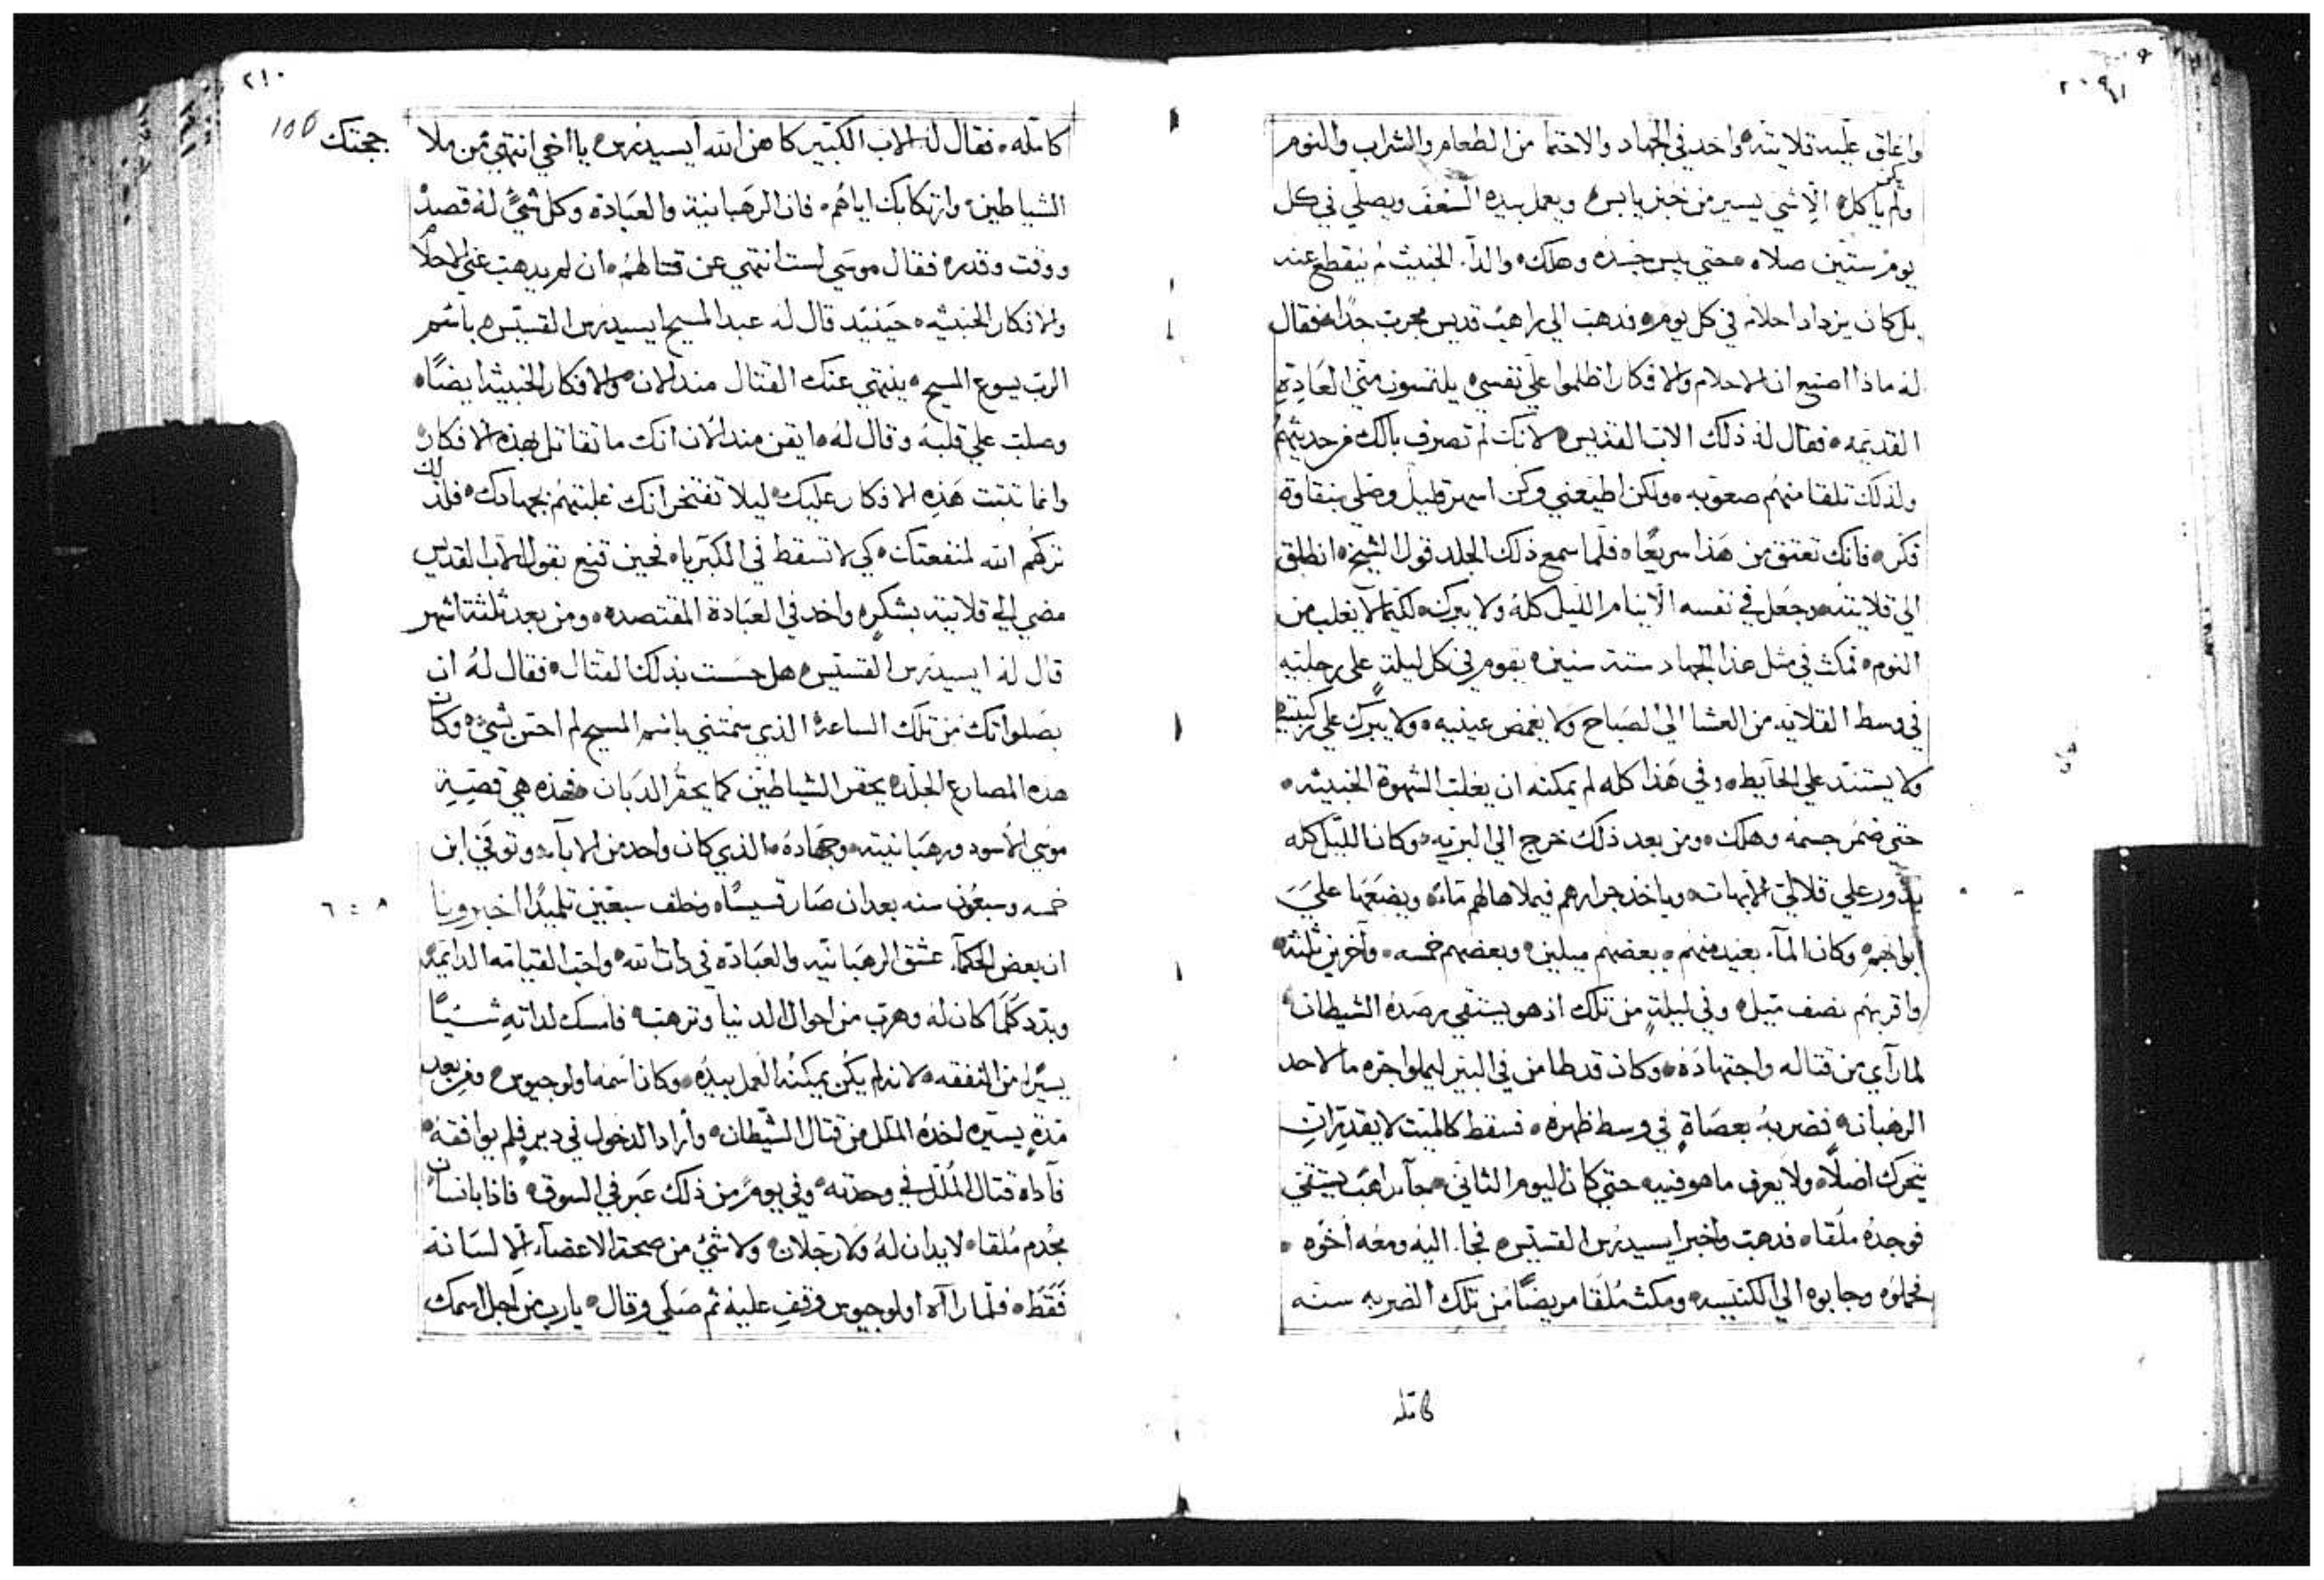 ٢٠٩
واغلق عليه قلايته واخد في الجهاد والاحتما من الطعام والشراب والنوم
ولم ياكل الا شي يسير من خبز يابس ويعمل بيده السعف ويصلي في كل
يوم ستين صلاه حتي يبس جسده وهلك والداء الخبيث لم ينقطع عنه
بل كان يزداد احلام في كل يوم فدهب الي راهب قديس مجرب جدا فقال
له ماذا اصنع ان الاحلام والافكار اظلموا علي نفسي يلتمسون مني العادة
القديمه فقال له ذلك الاب القديس لانك لم تصرف بالك من حديثهم
ولذلك تلقا منهم صعوبه ولكن اطيعني وكن اسهر قليل وصلي بنقاوة
فكر فانك تعتق من هذا سريعا فلما سمع ذلك الجلد قول الشيخ انطلق
الي قلايته وجعل في نفسه الا ينام الليل كله ولا يبرك لكيما لا يغلب من
النوم فمكث في مثل هذا الجهاد ستة سنين يقوم في كل ليلة علي رجليه
في وسط القلايه من العشا الي الصباح ولا يغمض عينيه ولا يبرك علي ركبتيه
ولا يستند علي الحايط وفي هذا كله لم يمكنه ان يغلب الشهوة الخبيثه
حتي ضمر جسمه وهلك ومن بعد ذلك خرج الي البريه وكان الليل كله
يدور علي قلالي الابهات وياخد جرارهم فيملاها لهم ماء ويضعها علي
ابوابهم وكان الماء بعيد منهم بعضهم ميلين وبعضهم خمسه واخرين ثلثه
واقربهم نصف ميل وفي ليلة من تلك اذ هو يستقي رصده الشيطان
لما راي من قتاله واجتهاده وكان قد طامن في البير ليملوا جره ما لاحد
الرهبان فضربه بعصاة في وسط ظهره فسقط كالميت لا يقدر ان
يتحرك اصلا ولا يعرف ما هو فيه حتي كان اليوم الثاني جاء راهب يستقي
فوجده ملقا فدهب واخبر ايسيدرس القسيس فجاء اليه ومعه اخوه
فحملوه وجابوه الي الكنيسه ومكث ملقا مريضا من تلك الضربه سنه
كامله
٢١٠
كامله فقال له الاب الكبير كاهن الله ايسيدرس يا اخي انتهي من ملا
ججتك
الشياطين وارتكابك اياهم فان الرهبانية والعبادة وكل شي له قصد
ووقت وقدر فقال موسي لست انتهي عن قتالهم ان لم يدهب عني الاحلام
والافكار الخبيثه حينيد قال له عبد المسيح ايسيدرس القسيس باسم
الرب يسوع المسيح ينتهي عنك القتال مند الان والافكار الخبيثه ايضا
وصلب علي قلبه وقال له ايقن مند الان انك ما تقاتل بهذه الافكار
وانما تثبت هذه الافكار عليك ليلا تفتخر انك غلبتهم بجهادك فلذلك
تركهم الله لمنفعتك كي لا تسقط في الكبريا فحين قنع بقول الاب القديس
مضي الي قلايته بشكر واخد في العبادة المقتصده ومن بعد ثلثة اشهر
قال له ايسيدرس القسيس هل حسست بذلك القتال فقال له ان
بصلواتك من تلك الساعة الذي ختمتني باسم المسيح لم احس بشي وكان
هده المصارع الجلد يحقر الشياطين كما يحقر الدبان فهذه هي قصة
موسي الاسود ورهبانيته وجهاده الذي كان واحد من الاباء وتوفي ابن
خمسه وسبعون سنه بعد ان صار قسيسا وخلف سبعين تلميدا اخبرونا
ان بعض الحكماء عشق الرهبانيه والعبادة في ذات الله واحب القيامه الدايمه
وبدد كلما كان له وهرب من احوال الدنيا وترهب فامسك لداته شيا
يسيرا من النفقه لانه لم يكن يمكنه العمل بيده وكان اسمه اولوجيوس فمن بعد
مدة يسيره اخده الملل من قتال الشيطان واراد الدخول في دير فلم يوافقه
فاداه قتال الملل في وحدته وفي يوم من ذلك عبر في السوق فاذا بانسان
مجدم ملقا لا يدان له ولا رجلان ولا شي من صحة الاعضاء الا لسانه
فقط فلما راه اولوجيوس وقف عليه ثم صلي وقال يا رب من اجل اسمك